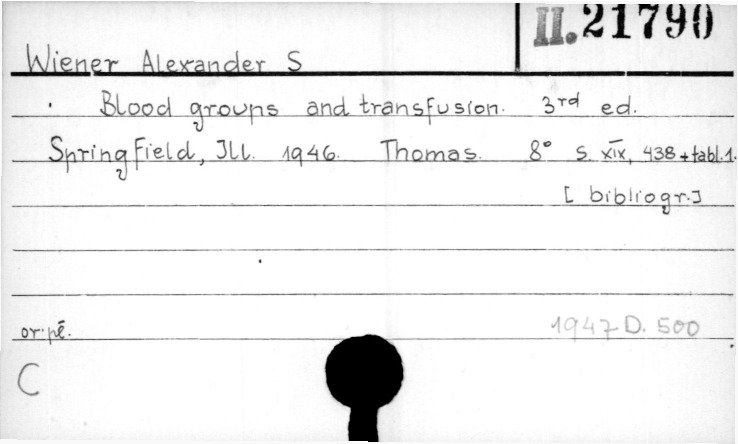 II. 21790
Wiener Alexander S
Blood groups and transfusion. 3rd ed.
Springfield, Ill. 1946. Thomas. 8° s. xix, 438 + tabl. 1.
[bibliogr.]
1947 D. 500
C